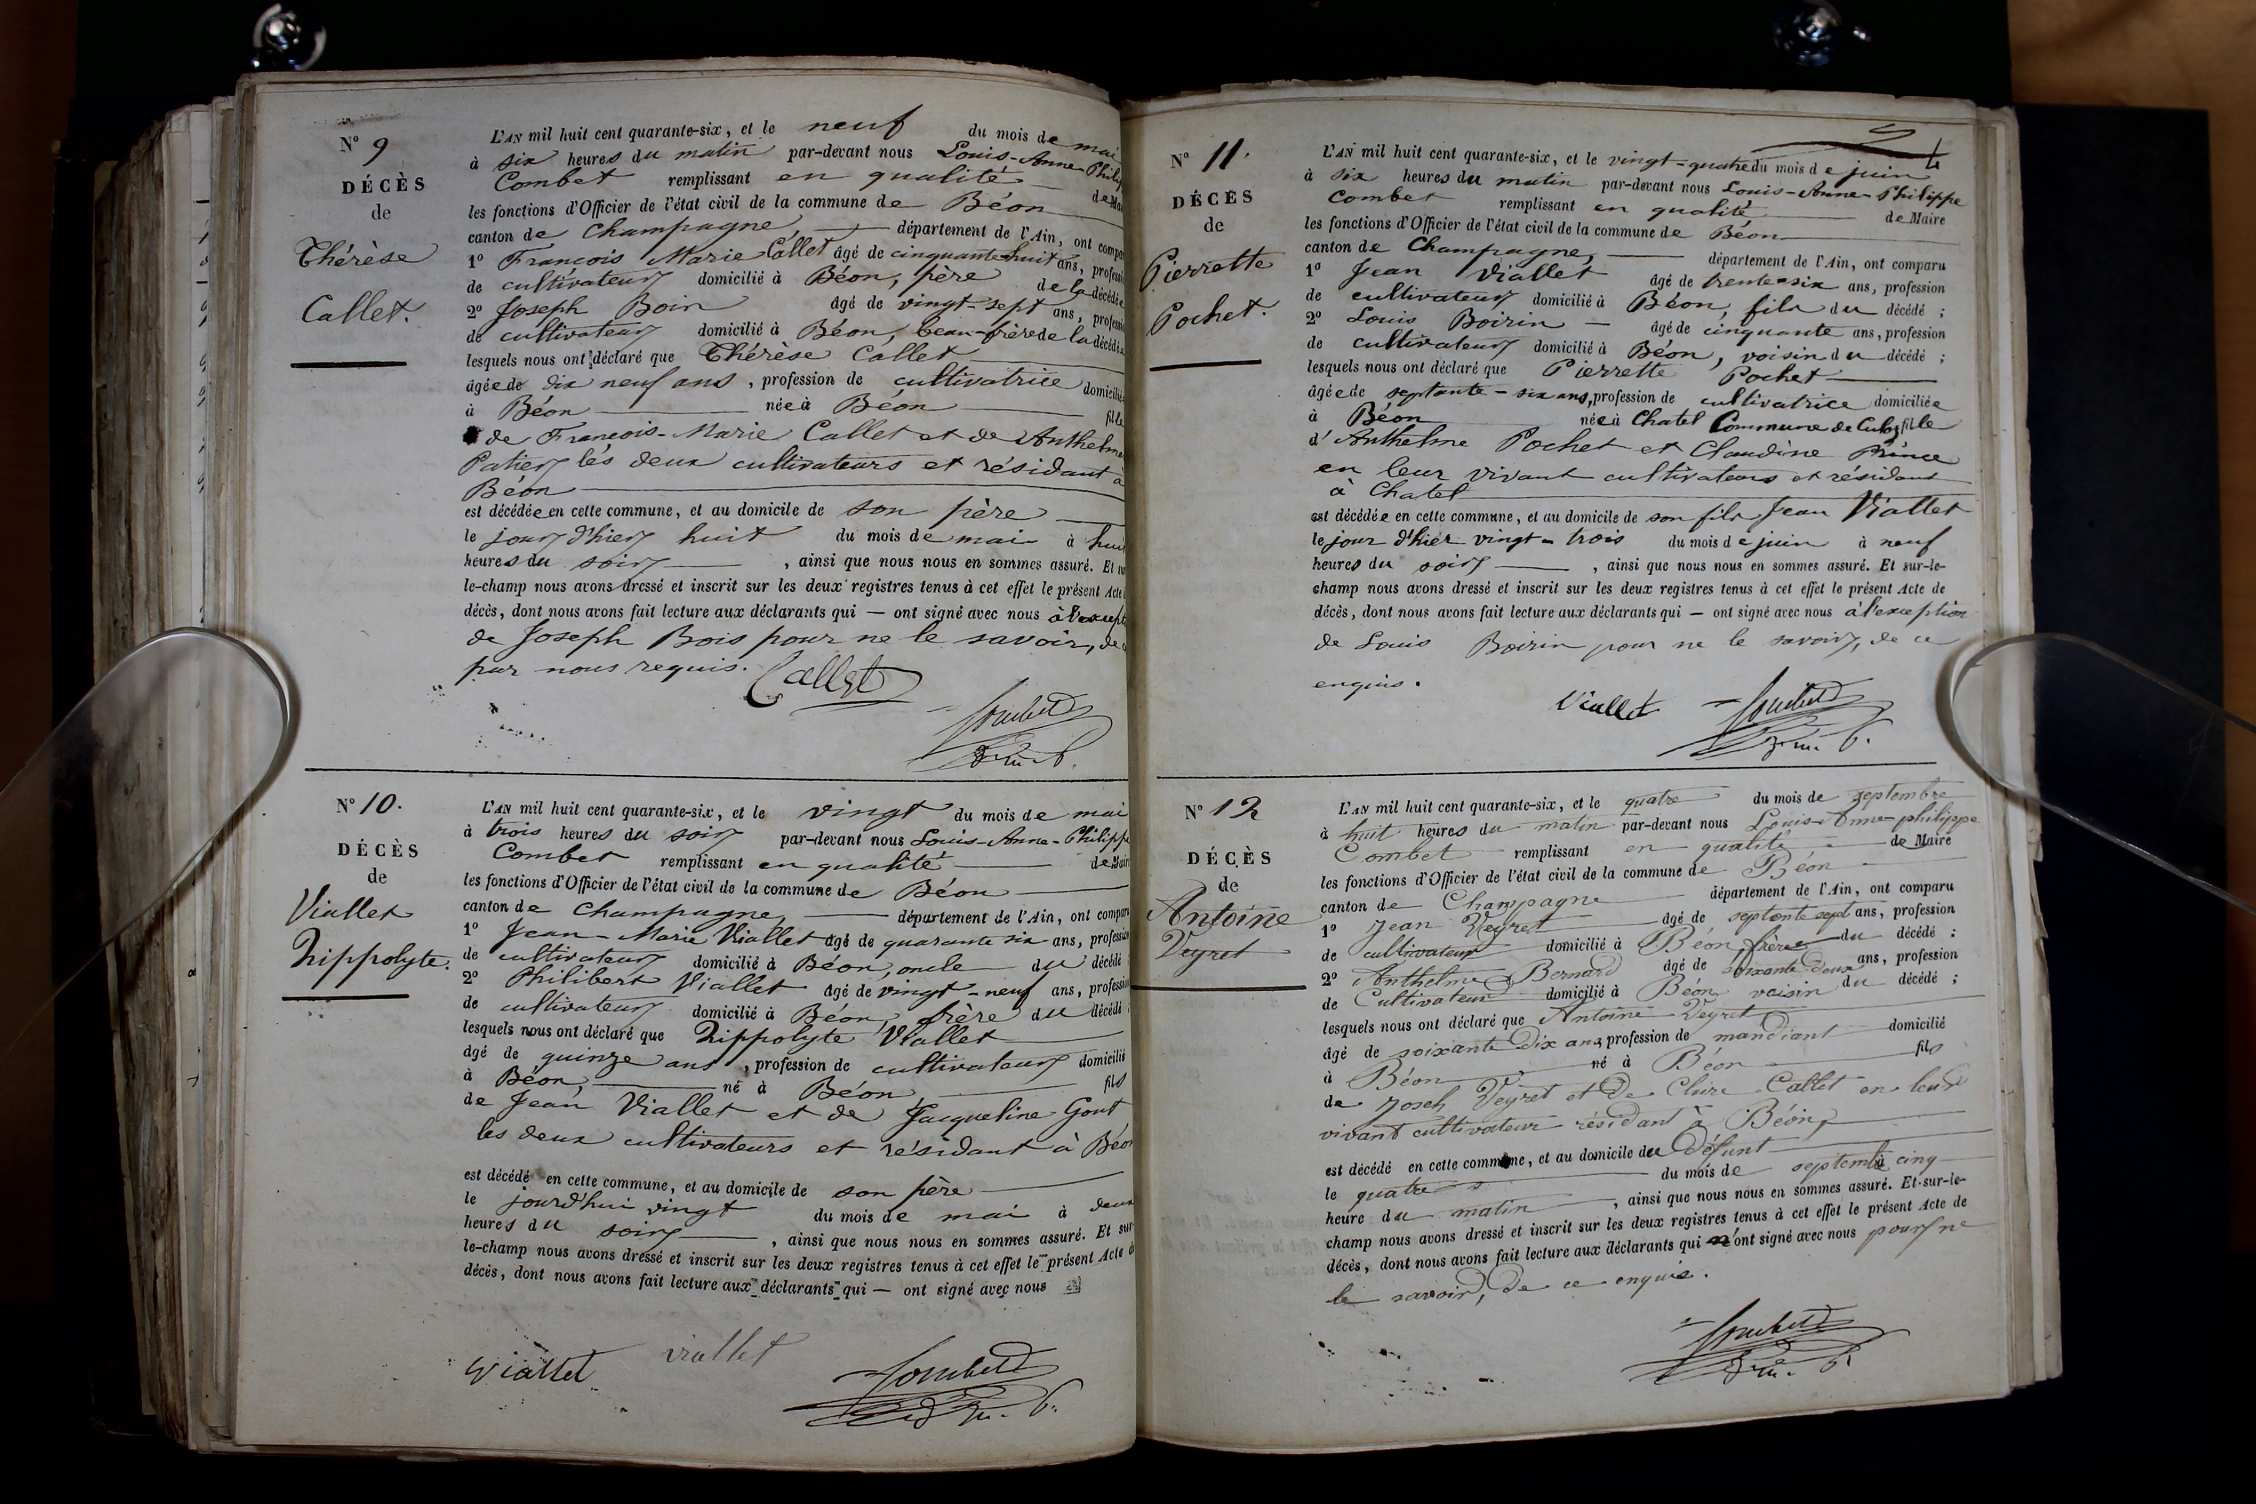 Nº 9
DÉCÈS
de
Thérèse
Callet.
L'AN mil huit cent quarante-six, et le neuf du mois de mai
à six heures du matin par-devant nous Louis-Anne-Philip
Combet remplissant en qualité de Mai
les fonctions d'Officier de l'état civil de la commune de Béon
canton de Champagne, département de l'Ain, ont compa
1º François Marie Callet âgé de cinquante-huit ans, profess
de cultivateur domicilié à Béon, père de la décédée
2º Joseph Boin âgé de vingt-sept ans, profess
de cultivateur domicilié à Béon, beau-frère de la décédée
lesquels nous ont déclaré que Thérèse Callet
âgée de dix neuf ans, profession de cultivatrice domiciliée
à Béon née à Béon fille
de François-Marie Callet et de Anthelme
Patier les deux cultivateurs et résidant à
Béon
est décédée en cette commune, et au domicile de son père
le jour d'hier huit du mois de mai à huit
heures du soir, ainsi que nous nous en sommes assuré. Et sur
le-champ nous avons dressé et inscrit sur les deux registres tenus à cet effet le présent Acte
décès, dont nous avons fait lecture aux déclarants qui — ont signé avec nous à l'except
de Joseph Bois pour ne le savoir, de
par nous requis.
Callet
Combet
Nº 10.
DÉCÈS
de
Viallet
Hippolyte.
L'AN mil huit cent quarante-six, et le vingt du mois de mai
à trois heures du soir par-devant nous Louis-Anne-Philippe
Combet remplissant en qualité de Maire
les fonctions d'Officier de l'état civil de la commune de Béon
canton de Champagne, département de l'Ain, ont comparu
1º Jean-Marie Viallet âgé de quarante six ans, profession
de cultivateur domicilié à Béon, oncle du décédé
2º Philibert Viallet âgé de vingt-neuf ans, profession
de cultivateur domicilié à Béon, frère du décédé
lesquels nous ont déclaré que Hippolyte Viallet
âgé de quinze ans, profession de cultivateur domicilié
à Béon, né à Béon fils
de Jean Viallet et de Jacqueline Gout
les deux cultivateurs et résidant à Béon
est décédé en cette commune, et au domicile de son père
le jourd'hui vingt du mois de mai à deux
heures du soir, ainsi que nous nous en sommes assuré. Et sur
le-champ nous avons dressé et inscrit sur les deux registres tenus à cet effet le présent Acte de
décès, dont nous avons fait lecture aux déclarants qui — ont signé avec nous
Viallet viallet Combet
Nº 11.
DÉCÈS
de
Pierrette
Pochet.
L'AN mil huit cent quarante-six, et le vingt-quatre du mois de juin
à six heures du matin par-devant nous Louis-Anne-Philippe
Combet remplissant en qualité de Maire
les fonctions d'Officier de l'état civil de la commune de Béon
canton de Champagne, département de l'Ain, ont comparu
1º Jean Viallet âgé de trente-six ans, profession
de cultivateur domicilié à Béon, fils du décédé ;
2º Louis Boirin — âgé de cinquante ans, profession
de cultivateur domicilié à Béon, voisin du décédé ;
lesquels nous ont déclaré que Pierrette Pochet
âgée de septante-six ans, profession de cultivatrice domiciliée
à Béon née à Chatel Commune de Culoz fille
d'Anthelme Pochet et Claudine Prince
en leur vivant cultivateurs et résidant
à Chatel
est décédée en cette commune, et au domicile de son fils Jean Viallet
le jour d'hier vingt-trois du mois de juin à neuf
heures du soir, ainsi que nous nous en sommes assuré. Et sur-le-
champ nous avons dressé et inscrit sur les deux registres tenus à cet effet le présent Acte de
décès, dont nous avons fait lecture aux déclarants qui — ont signé avec nous à l'exception
de Louis Boirin pour ne le savoir, de ce
enquis.
Viallet Combet
Nº 12
DÉCÈS
de
Antoine
Veyret
L'AN mil huit cent quarante-six, et le quatre du mois de septembre
à huit heures du matin par-devant nous Louis-Anne-philippe
Combet remplissant en qualité de Maire
les fonctions d'Officier de l'état civil de la commune de Béon
canton de Champagne département de l'Ain, ont comparu
1º Jean Veyret âgé de septante sept ans, profession
de cultivateur domicilié à Béon, frère du décédé ;
2º Anthelme Bernard âgé de soixante deux ans, profession
de Cultivateur domicilié à Béon voisin du décédé ;
lesquels nous ont déclaré que Antoine Veyret
âgé de soixante dix ans, profession de mandiant domicilié
à Béon né à Béon fils
de Joseh Veyret et De Claire Callet en leur
vivant cultivateur résidant à Béon,
est décédé en cette commune, et au domicile du Défunt
le quatre du mois de septembre à cinq
heure du matin, ainsi que nous nous en sommes assuré. Et sur-le-
champ nous avons dressé et inscrit sur les deux registres tenus à cet effet le présent Acte de
décès, dont nous avons fait lecture aux déclarants qui n'ont signé avec nous pour ne
le savoir, De ce enquis.
Combet